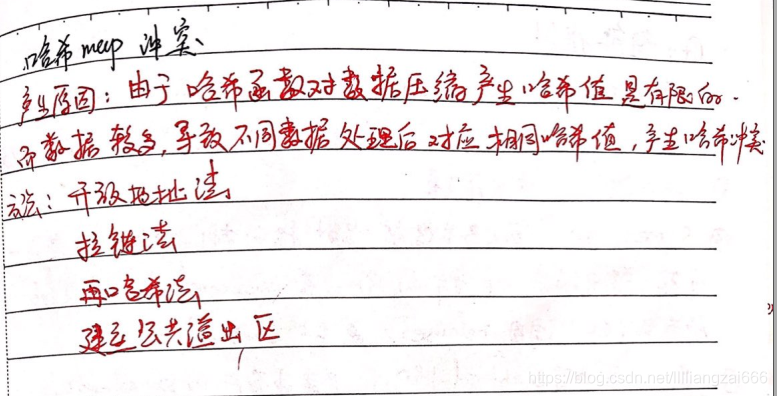 哈希map 冲突、
产生原因：由于哈希函数对数据压缩产生哈希值是有限的.
而数据较多,导致不同数据处理后对应相同哈希值,产生哈希冲突
方法：开放地址法
拉链法
再哈希法
建立公共溢出区
https://blog.csdn.net/lilliangzai666